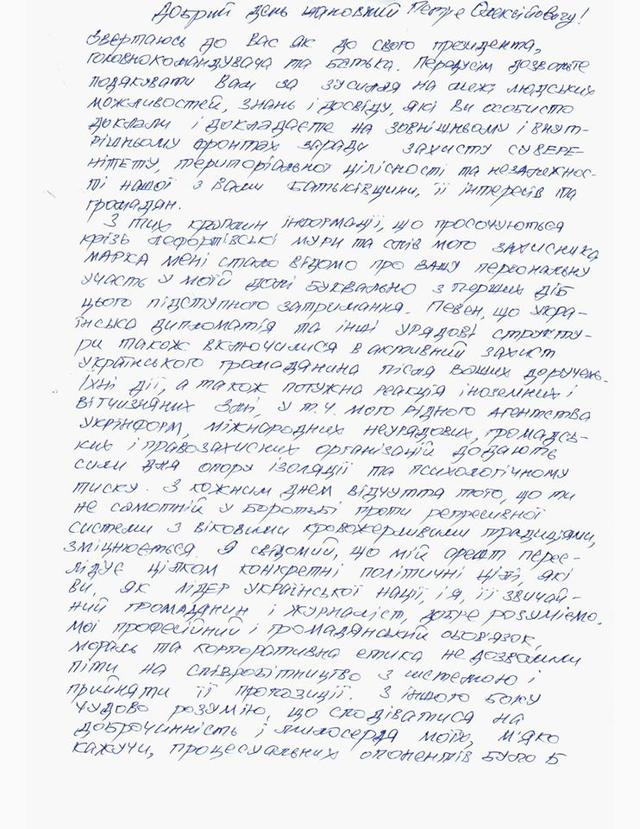 Добрий день шановний Петре Олексійовичу!
Звертаюсь до Вас як до свого президента,
головнокомандувача та батька. Передусім дозвольте
подякувати Вам за зусилля на межі людських
можливостей, знань і досвіду, які Ви особисто
доклали і докладаєте на зовнішньому і внут-
рішньому фронтах заради захисту сувере-
нітету, територіальної цілісності та незалежнос-
ті нашої з вами Батьківщини, її інтересів та
громадян.
З тих крапаин інформації, що просочуються
крізь лефортівські мури та слів мого захисника
Марка мені стало відомо про Вашу персональну
участь у моїй долі буквально з перших діб
цього підступного затримання. Певен, що укра-
їнська дипломатія та інші урядові структу-
ри також включилися в активний захист
українського громадянина після Ваших доручень.
Їхні дії, а також потужна реакція іноземних і
вітчизняних ЗМІ, у т.ч. мого рідного агентства
Укрінформ, міжнародних неурядових, громадсь-
ких і правозахисних організацій додають
сили для опору ізоляції та психологічному
тиску. З кожним днем відчуття того, що ти
не самотній у боротьбі проти репресивної
системи з віковими кровожерливими традиціями,
зміцнюється. Я свідомий, що мій арешт перес-
лідує цілком конкретні політичні цілі, які
ви, як лідер української нації, і я, її звичай-
ний громадянин і журналіст, добре розуміємо.
Мої професійний і громадянський обов'язок,
мораль та корпоративна етика не дозволили
піти на співробітництво з системою і
прийняти її пропозиції. З іншого боку
чудово розумію, що сподіватися на
доброчинність і милосердя моїх, м'яко
кажучи, процесуальних опонентів було б